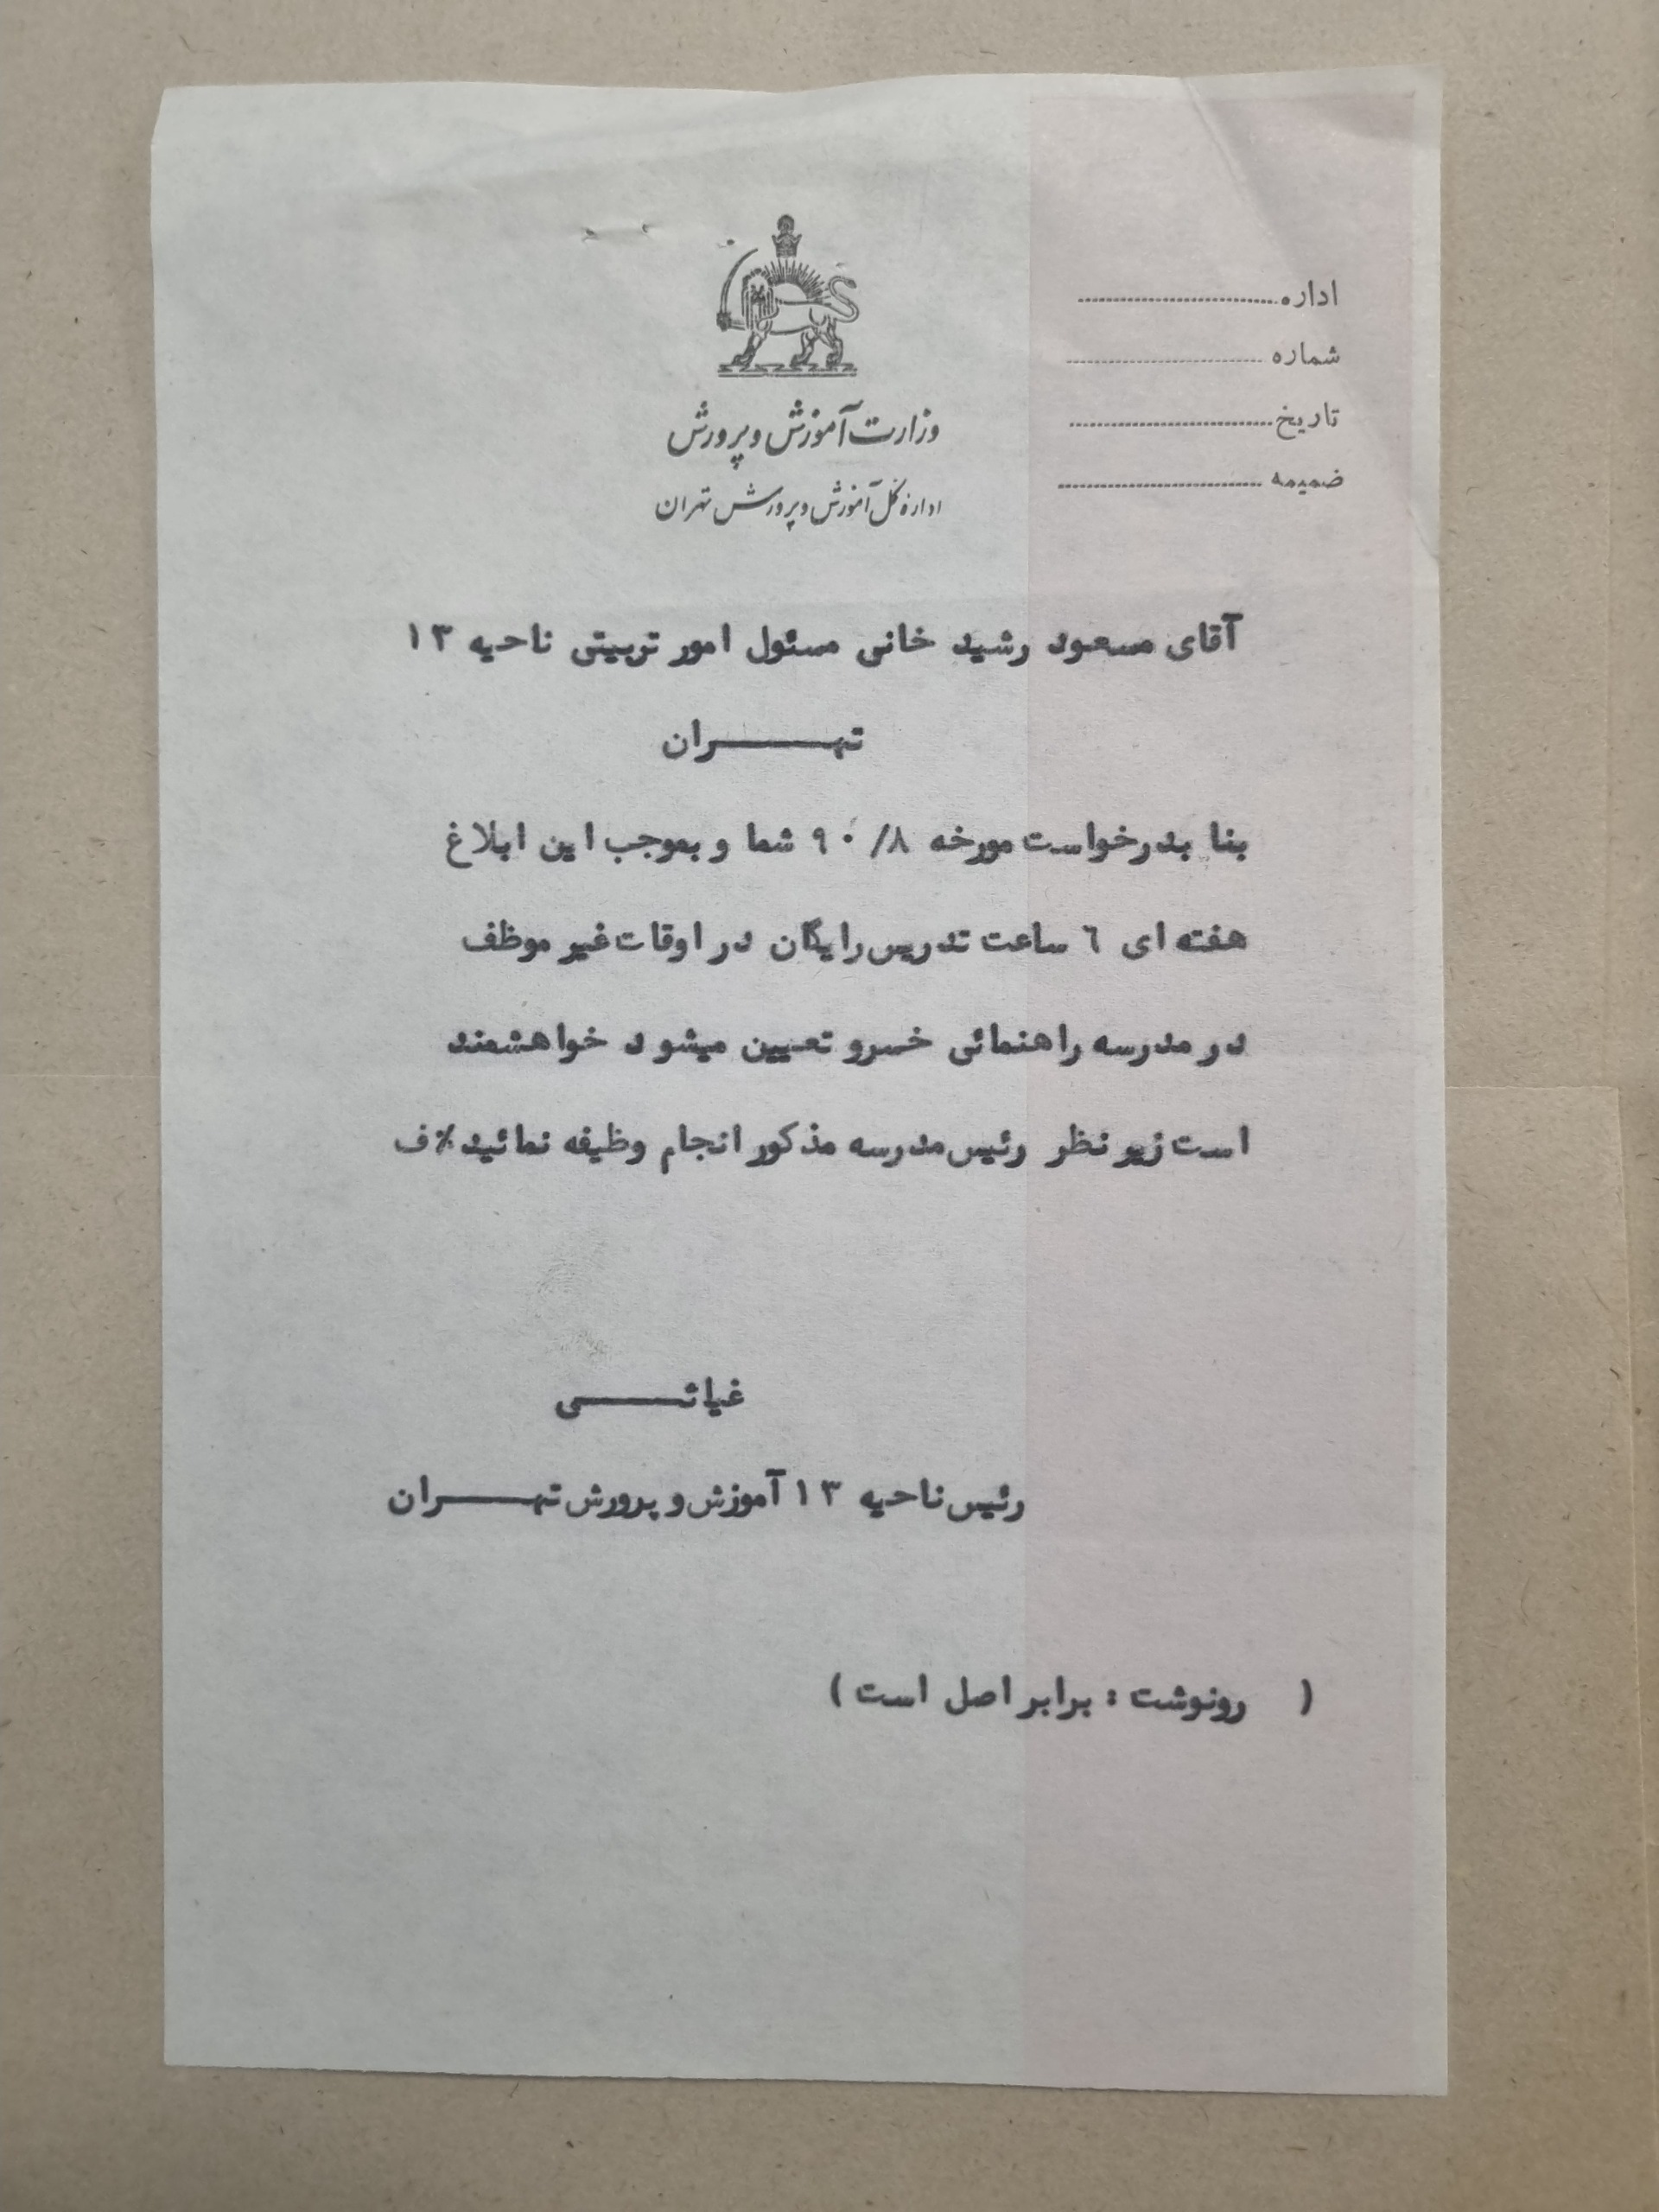 اداره
شماره
تاریخ
ضمیمه
وزارت آموزش و پرورش
اداره کل آموزش و پرورش تهران
آقای مسعود رشید خانی مسئول امور تربیتی ناحیه ۱۳
تهــــران
بنا بدرخواست مورخه ۹۰/۸ شما و بموجب این ابلاغ
هفته ای ٦ ساعت تدریس رایگان در اوقات غیر موظف
در مدرسه راهنمائی خسرو تعیین میشود خواهشمند
است زیر نظر رئیس مدرسه مذکور انجام وظیفه نمائید٪ف
غیاثــــی
رئیس ناحیه ۱۳ آموزش و پرورش تهــــران
( رونوشت : برابر اصل است )